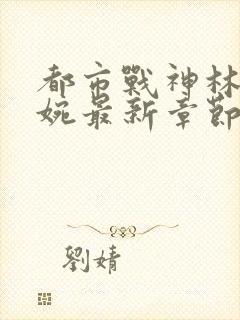 都市戰神林
婉最新章節
劉婧